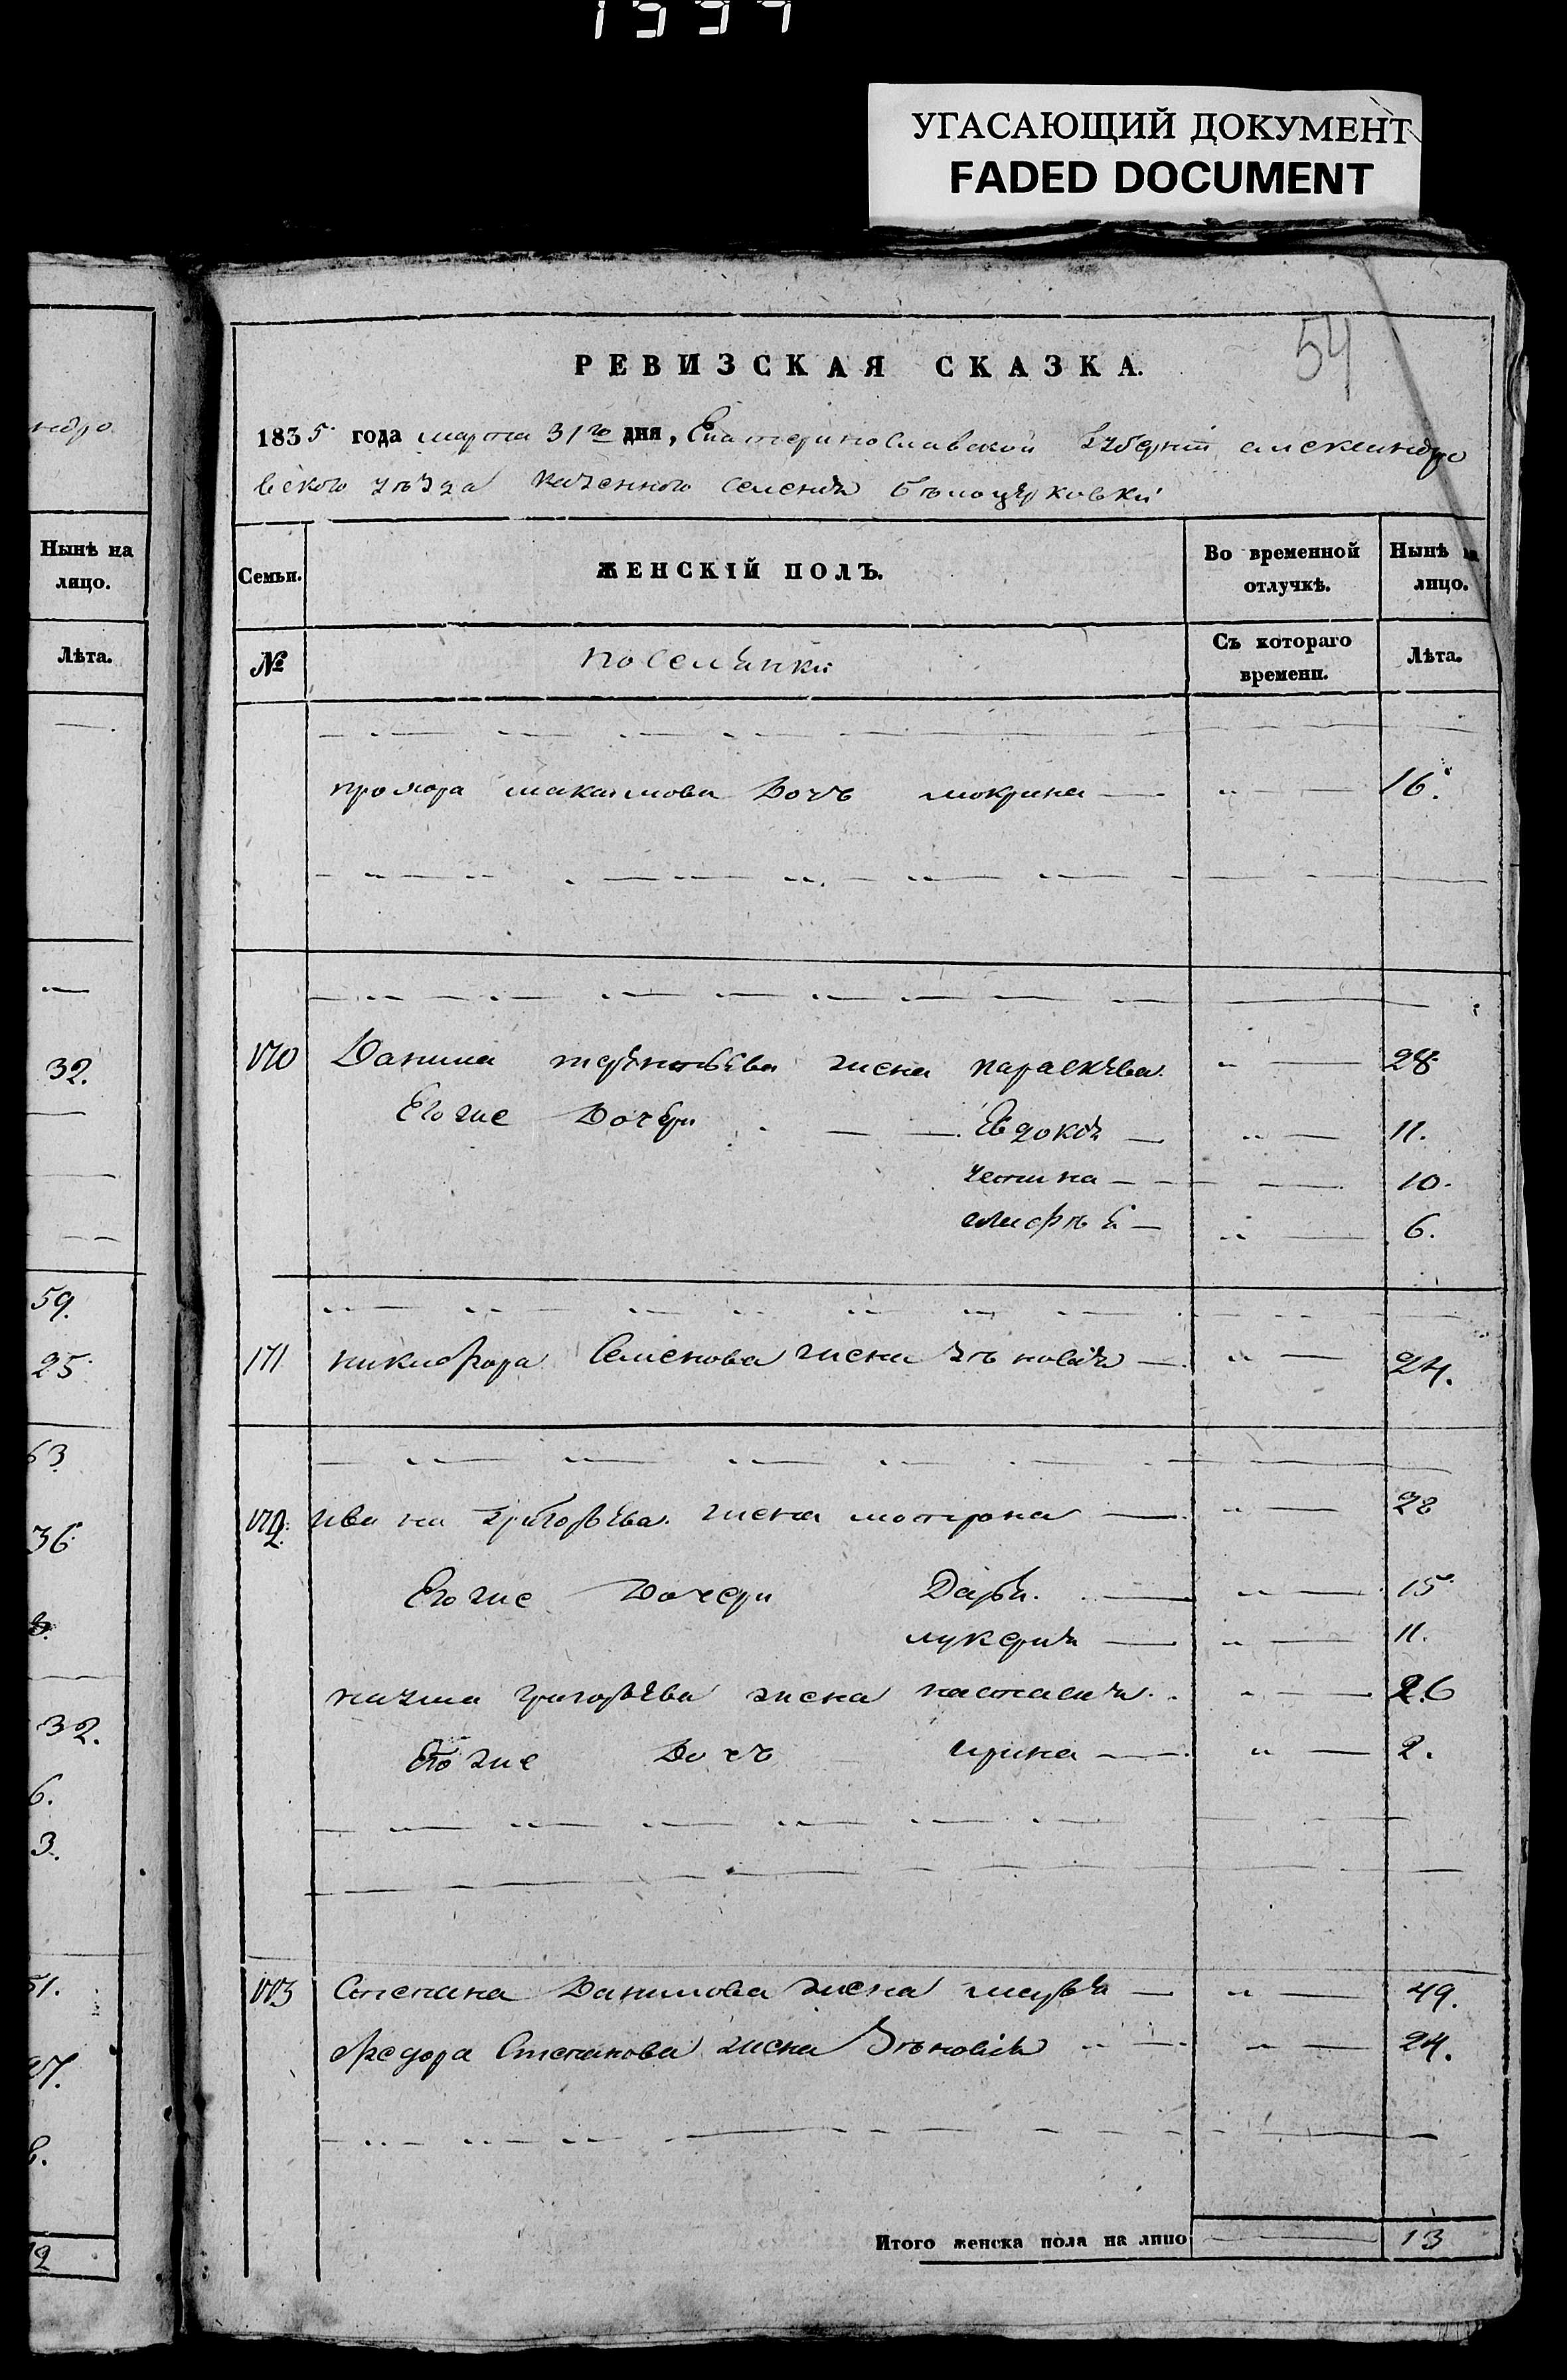 УГАСАЮЩИЙ ДОКУМЕНТ
FADED DOCUMENT
54
РЕВИЗСКАЯ СКАЗКА.
1835 года марта 31го дня, Екатеринославской Губерніи александро
вского уезда казенного селенія Бѣлоцерковки
Семьи.
ЖЕНСКІЙ ПОЛЪ.
Во временной отлучкѣ.
Нынѣ на лицо.
№
поселянки
Съ котораго времени.
Лѣта.
прохора максимова Дочь мокрина 16.
170 Данила терентьева жена параскева 28
Его же Дочери Евдокія 11.
устина 10.
марфа 6.
171 никифора Семенова жена зѣновія 24.
172. ивана григорьева жена мотрона 28
Его же Дочери Дарья 15
лукерія 11.
григорьева жена настасія 26
Его же Дочь ирина 2.
173 Степана Данилова жена марья 49.
Федора Степанова жена Зѣновія 24.
Итого женска пола на лицо 13
Нынѣ на
лицо.
Лѣта.
32.
59.
25.
63
36
32.
6.
3.